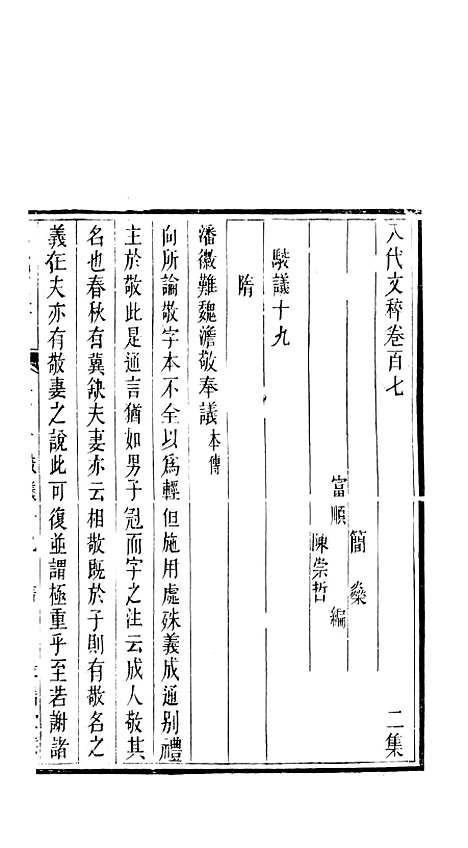 八代文粹卷百七 二集
簡燊
富順 編
陳崇哲
駮議十九
隋
潘徽難魏澹敬奉議本傳
向所論敬字本不全以爲輕但施用處殊義成通别禮
主於敬此是通言猶如男子冠而字之注云成人敬其
名也春秋有冀缺夫妻亦云相敬旣於子則有敬名之
義在夫亦有敬妻之說此可復並謂極重乎至若謝諸